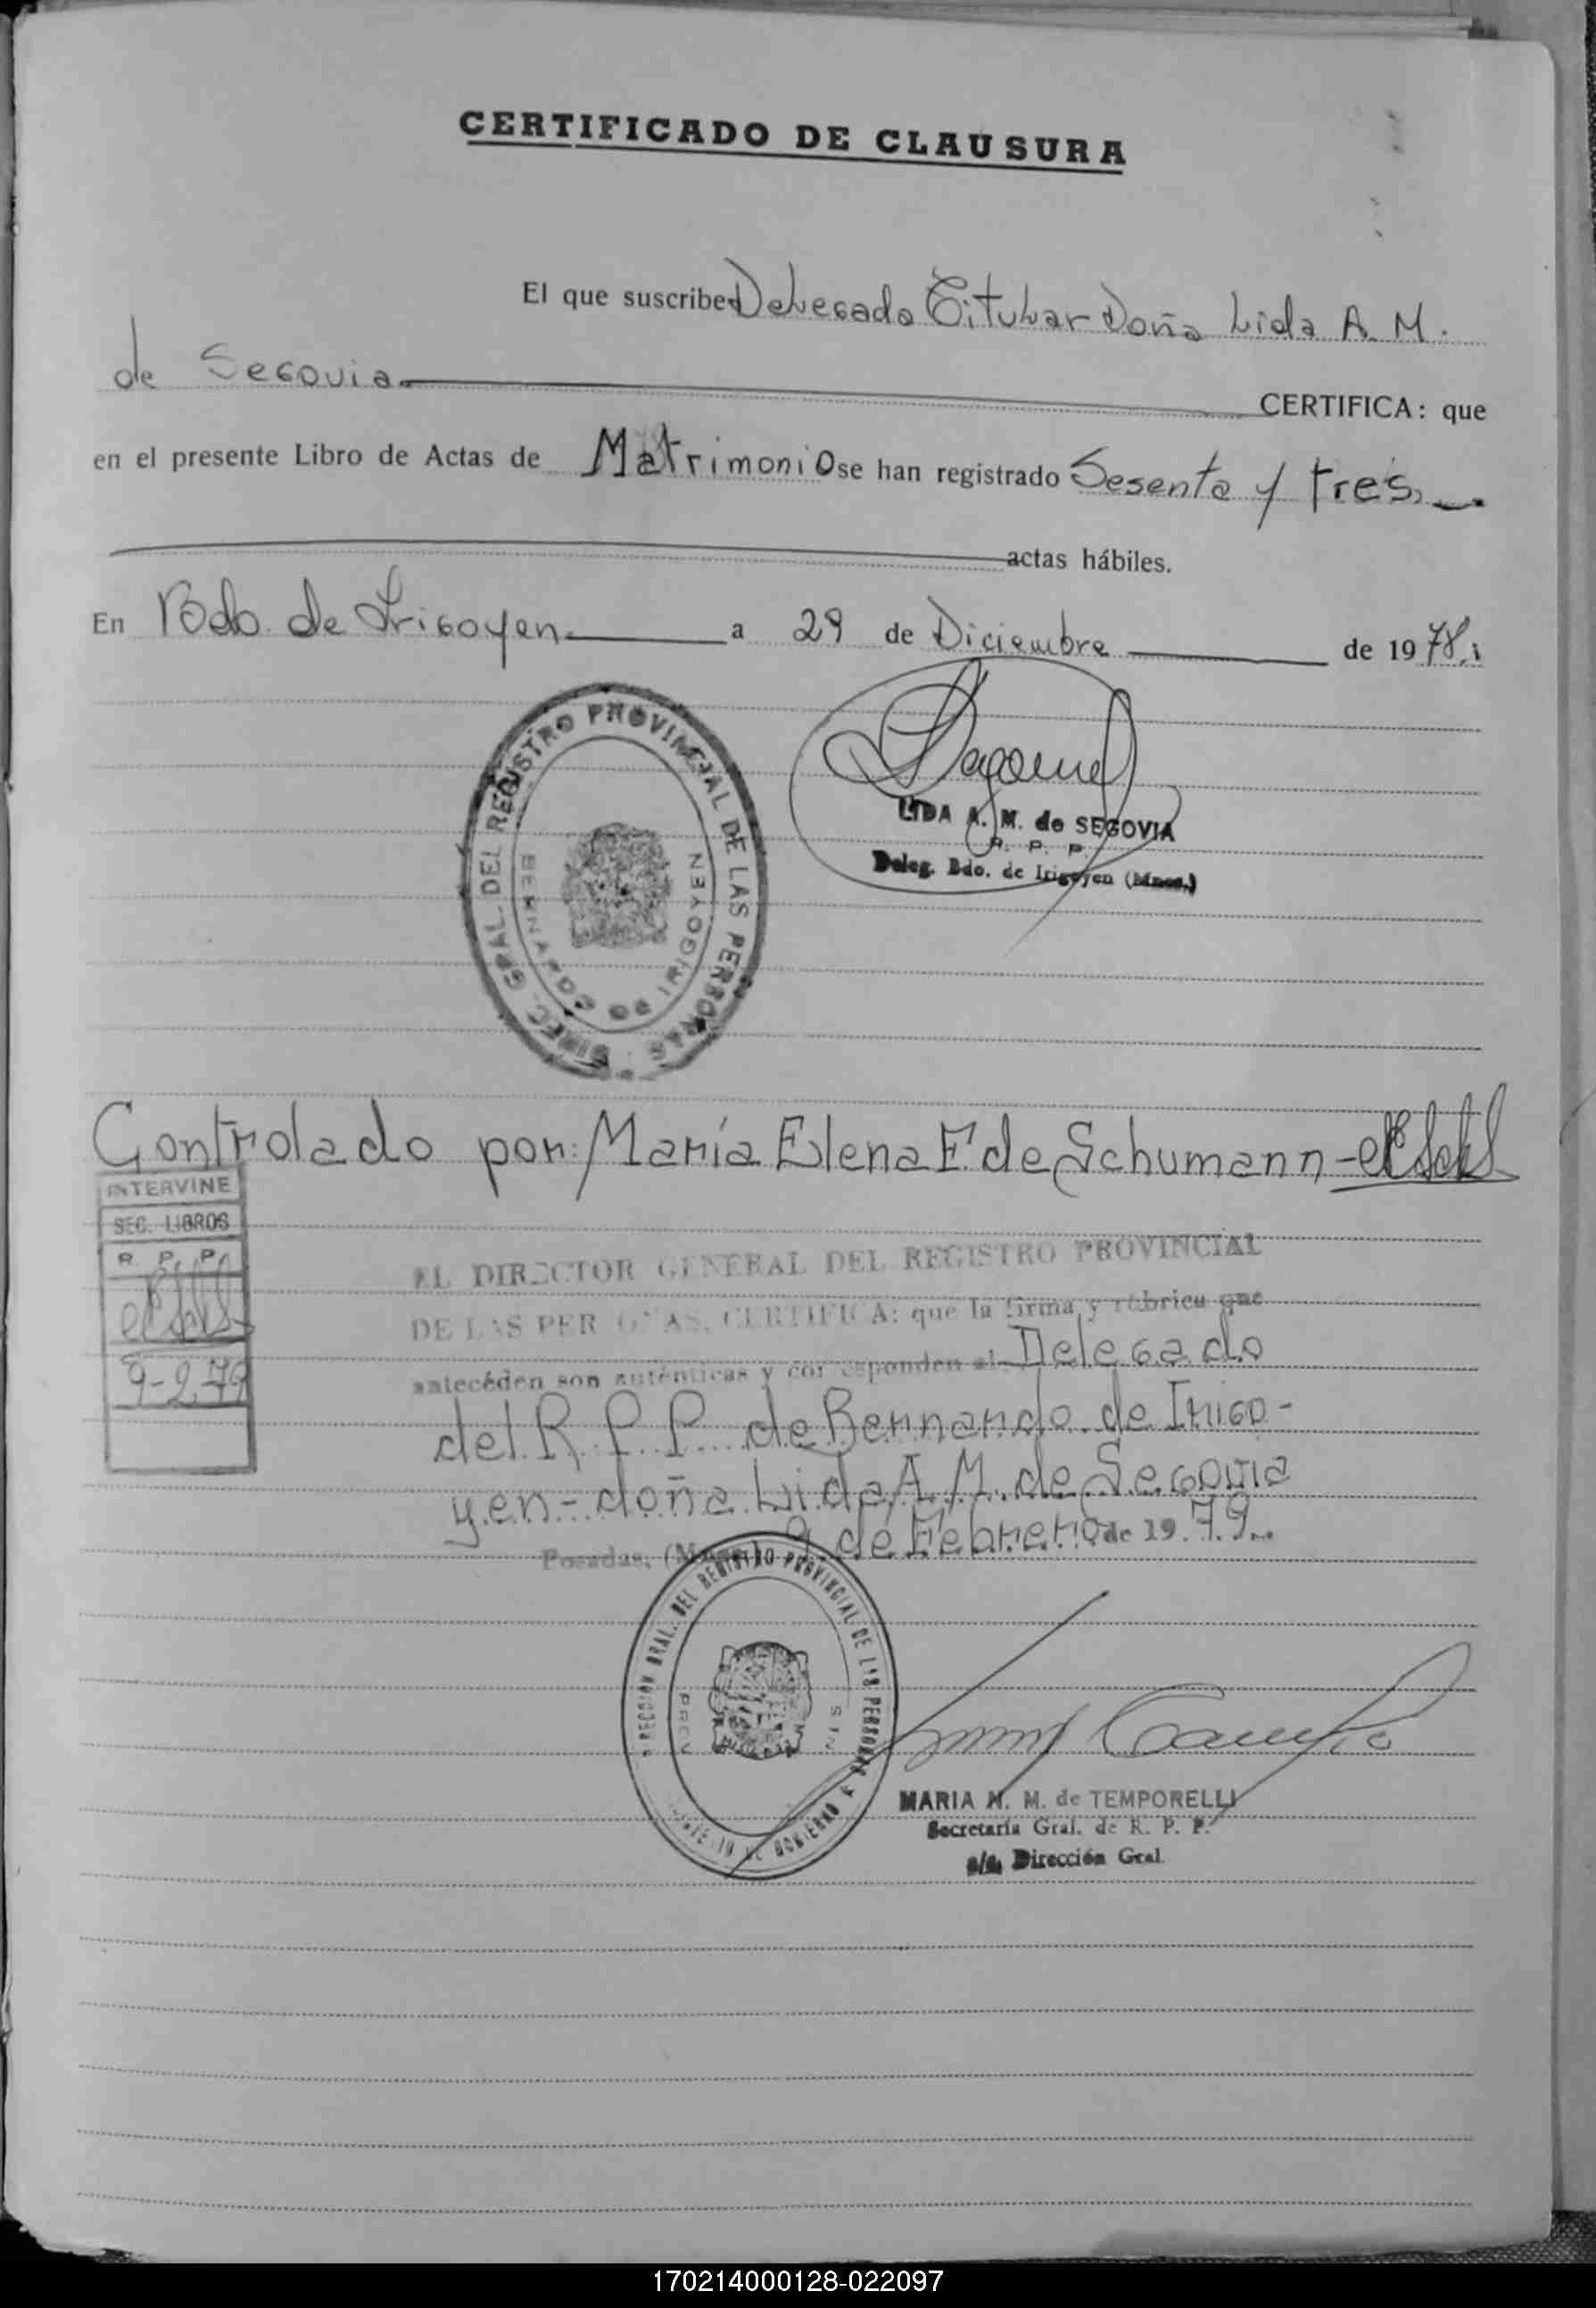 CERTIFICADO DE CLAUSURA
El que suscribe Delegado Titular Doña Lida A. M.
de Segovia CERTIFICA: que
en el presente Libro de Actas de Matrimonio se han registrado Sesenta y tres
actas hábiles.
En Bdo. de Irigoyen a 29 de Diciembre de 1978
DIREC. GRAL. DEL REGISTRO PROVINCIAL DE LAS PERSONAS
BERNARDO DE IRIGOYEN
LIDA A. M. de SEGOVIA
R. P. P.
Deleg. Bdo. de Irigoyen (Mnes.)
Controlado por: María Elena F. de Schumann
INTERVINE
SEC. LIBROS
R. P. P.
9-2-79
EL DIRECTOR GENERAL DEL REGISTRO PROVINCIAL
DE LAS PERSONAS, CERTIFICA: que la firma y rúbrica que
antecéden son auténticas y corresponden al Delegado
del R. P. P. de Bernardo de Irigo-
yen - doña Lida A. M. de Segovia
Posadas, (Mnes.) 9 de Febrero de 1979
DIRECCION GRAL. DEL REGISTRO PROVINCIAL DE LAS PERSONAS
MINISTERIO DE GOBIERNO
MARIA N. M. de TEMPORELLI
Secretaría Gral. de R. P. P.
a/c. Dirección Gral.
170214000128-022097